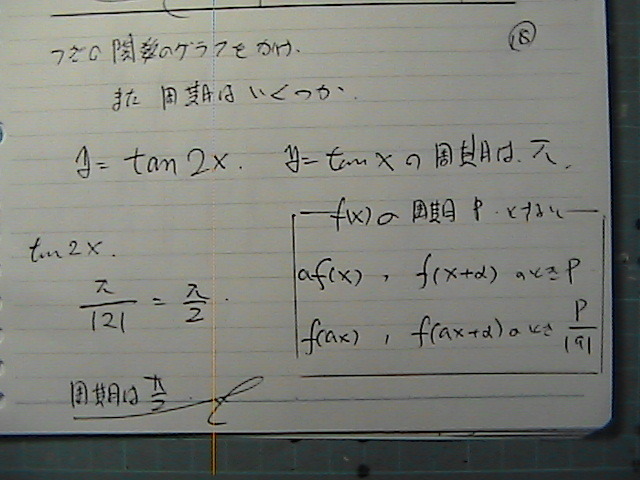 つぎの関数のグラフをかけ. ⑱
また 周期はいくつか.
y = tan 2x. y = tan x の周期は π.
f(x) の周期 P とすると
tan 2x.
af(x) , f(x+α) のとき P
π/|2| = π/2 .
f(ax) , f(ax+α) のとき P/|a|
周期は π/2